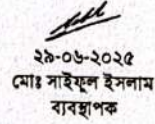 ২৯-০৬-২০২৫
মোঃ সাইফুল ইসলাম
ব্যবস্থাপক